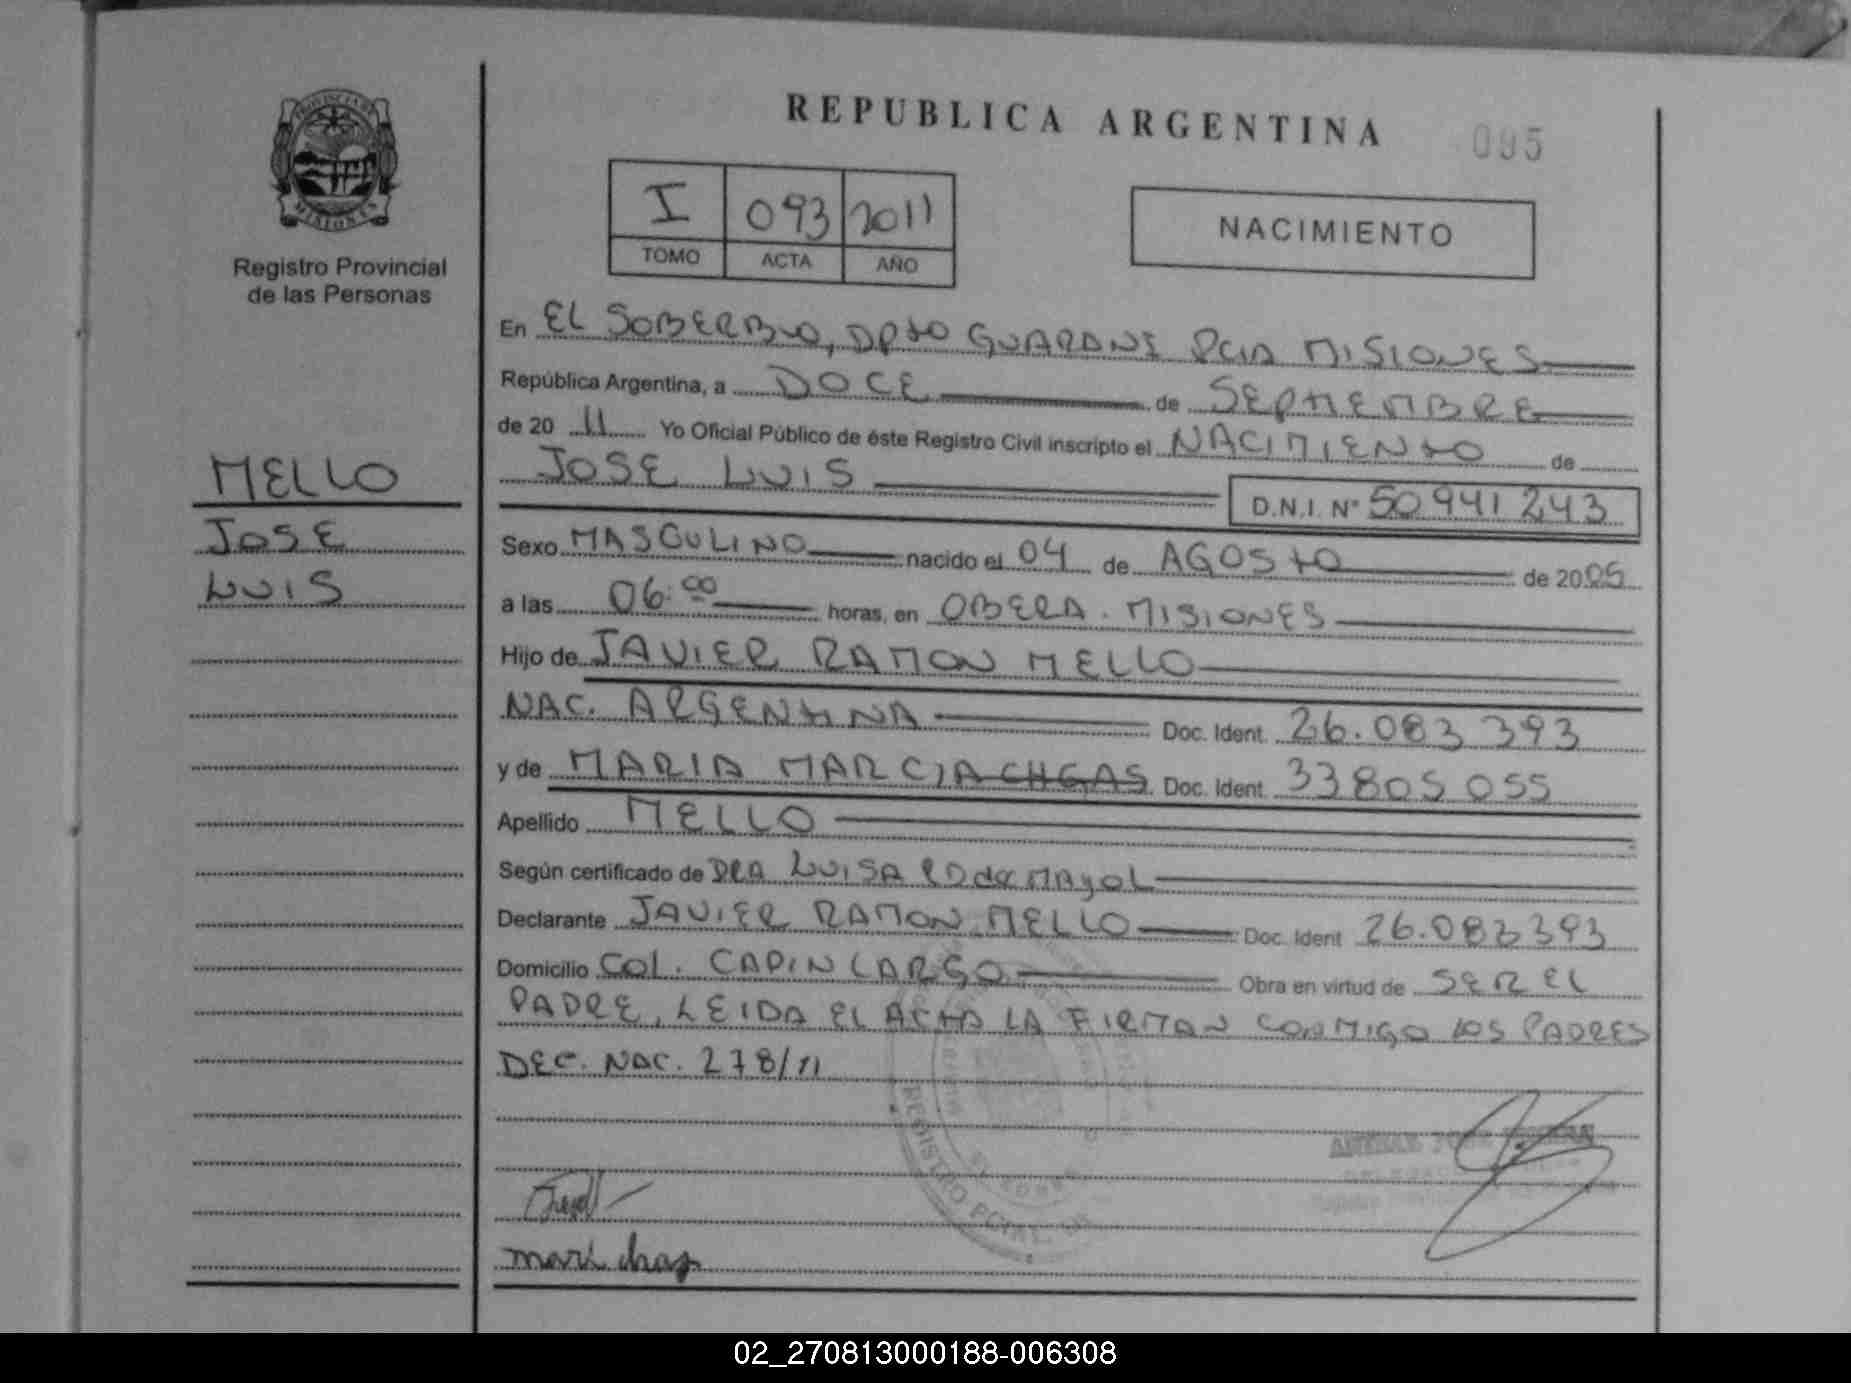 REPUBLICA ARGENTINA
095
PROVINCIA DE
MISIONES
Registro Provincial
de las Personas
I 093 2011
TOMO ACTA AÑO
NACIMIENTO
MELLO
JOSE
LUIS
En EL SOBERBIO, DPTO GUARANI PCIA MISIONES
República Argentina, a DOCE de SEPTIEMBRE
de 20 11 Yo Oficial Público de éste Registro Civil inscripto el NACIMIENTO de
JOSE LUIS D.N.I. N° 50 941 243
Sexo MASCULINO nacido el 04 de AGOSTO de 20 05
a las 06:00 horas, en OBERA. MISIONES
Hijo de JAVIER RAMON MELLO
NAC. ARGENTINA Doc. Ident. 26.083 393
y de MARIA MARCIA CHGAS Doc. Ident. 33805 055
Apellido MELLO
Según certificado de DRA LUISA de MAyOL
Declarante JAVIER RAMON MELLO Doc. Ident 26.083 393
Domicilio COL. CAPIN LARGO Obra en virtud de SER EL
PADRE, LEIDA EL ACTA LA FIRMAN CONMIGO LOS PADRES
DEC. NAC. 278/11
REGISTRO PCIAL. DE
02_270813000188-006308